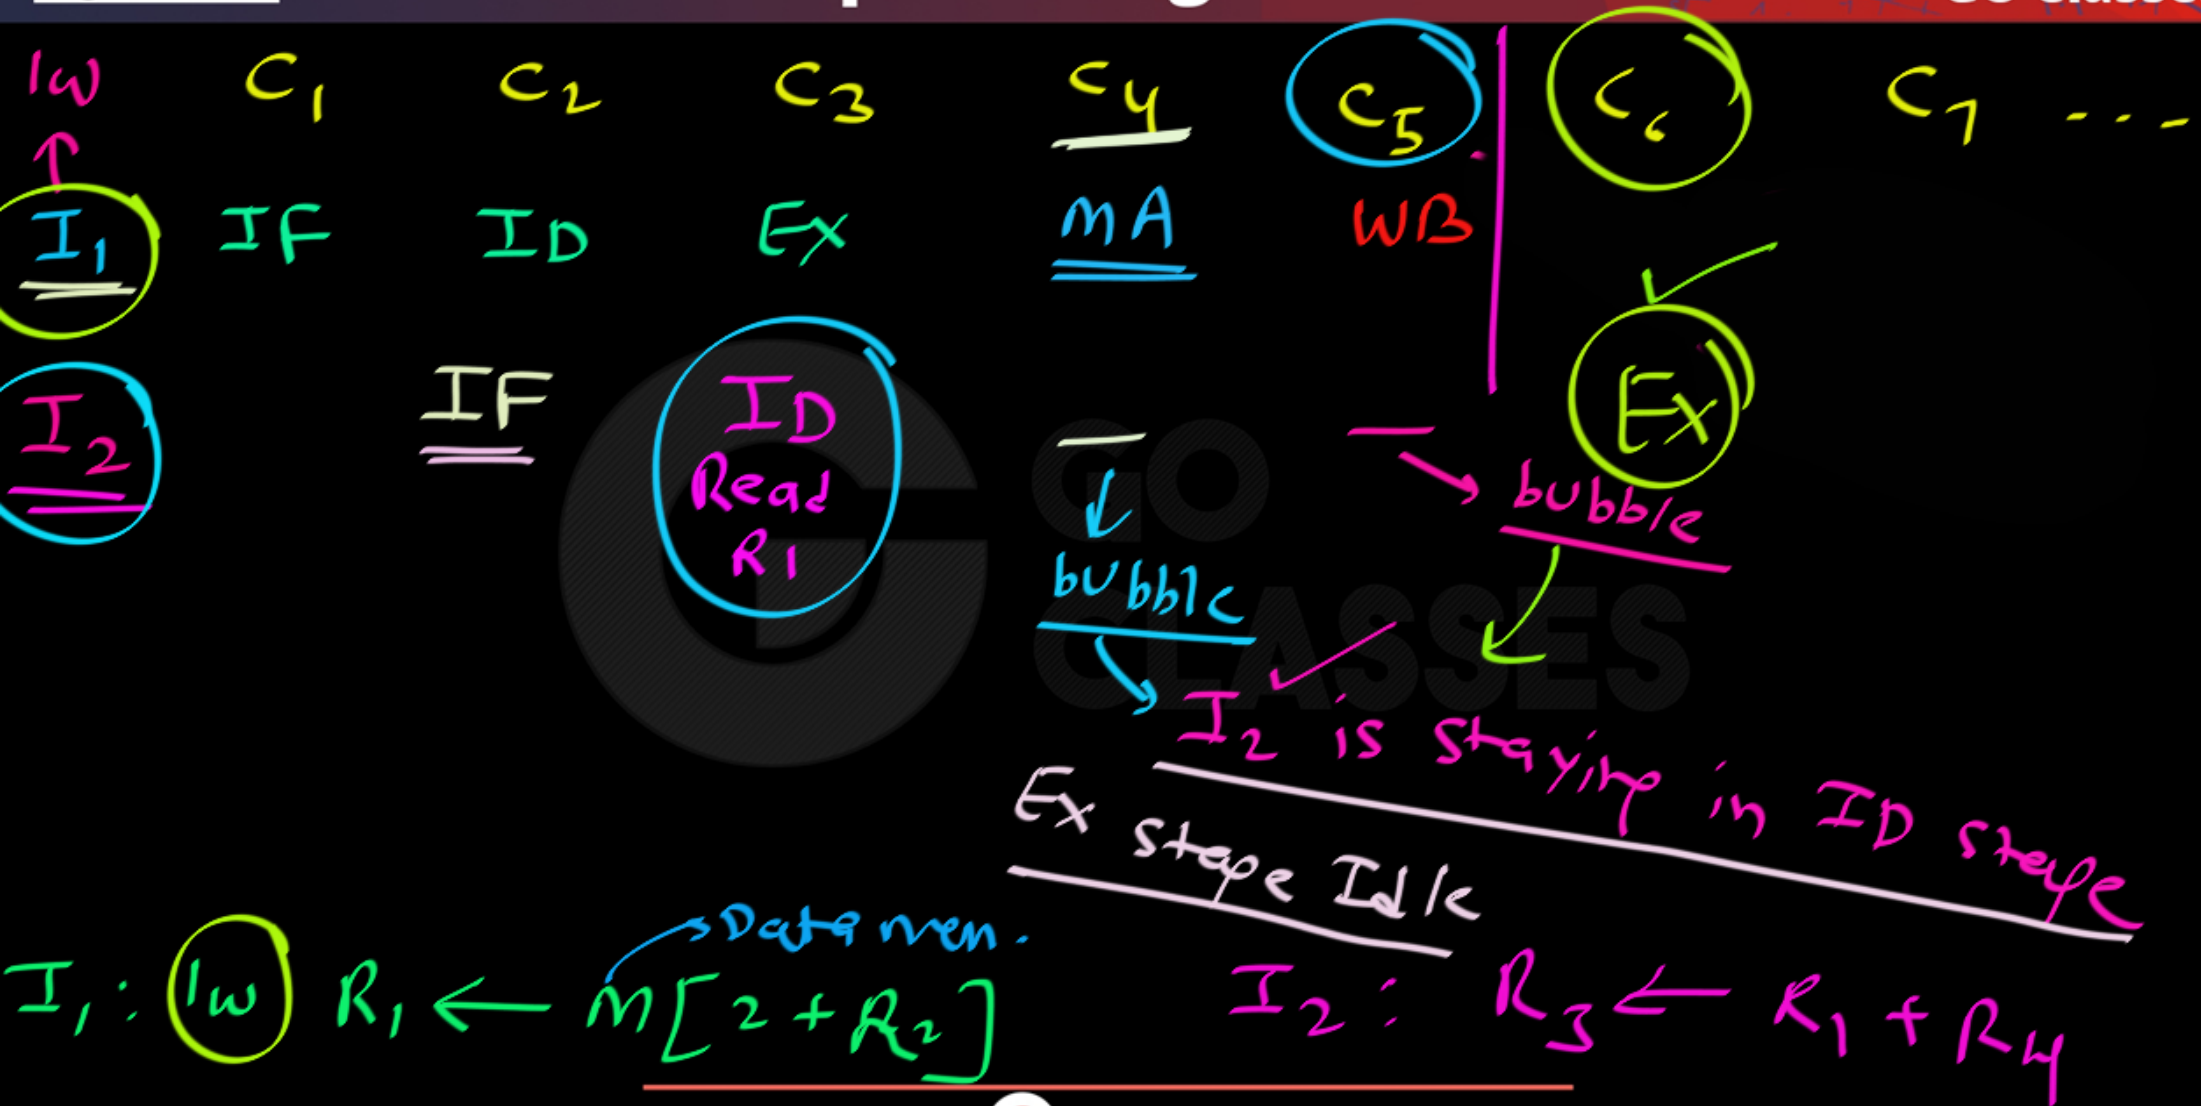 lw C1 C2 C3 C4 C5 C6 C7 ...
I1 IF ID Ex MA WB
I2 IF ID — — Ex
Read
R1
bubble
bubble
I2 is staying in ID stage
Ex stage Idle
Data mem.
I1: lw R1 ← M[2+R2]
I2: R3 ← R1 + R4
GO
CLASSES